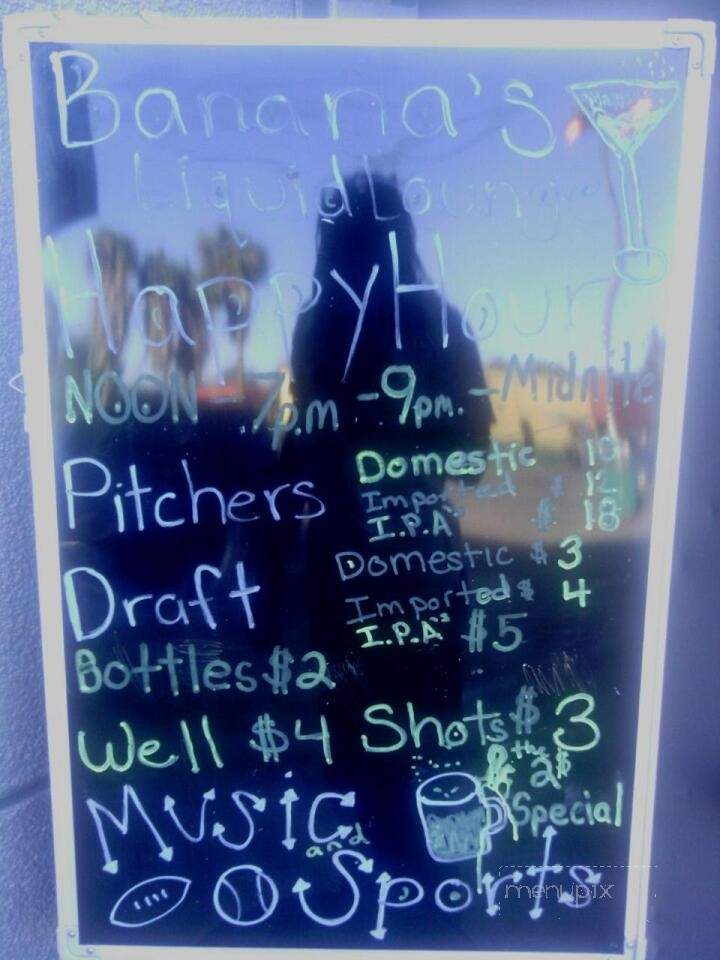 Banana's
Liquid Lounge
Happy Hour
NOON - 7p.m - 9pm. - Midnite
Pitchers Domestic 10
Imported $ 12
I.P.A $ 18
Draft Domestic $ 3
Imported $ 4
I.P.A's $5
Bottles $2
Well $4 Shots $3
the 2$
Special
Music
and
Sports
menupix